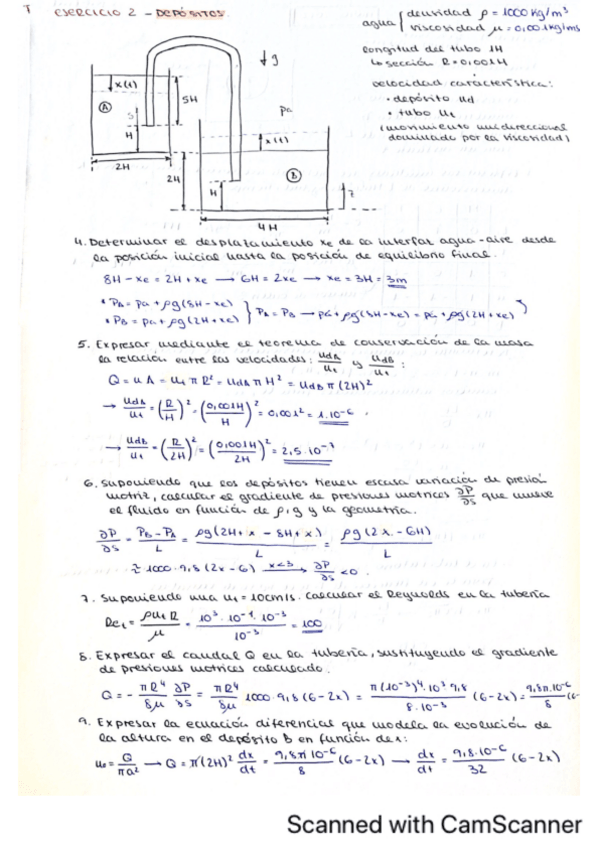 EJERCICIO 2 - DEPÓSITOS
agua { densidad ρ = 1000 kg/m³
viscosidad μ = 0,001 kg/ms
Longitud del tubo 1H
↳ sección R = 0,001H
velocidad característica:
• depósito ud
• tubo ut
(movimiento unidireccional
dominado por la viscosidad)
↓g
x(t)
5H
A
H
2H
Pa
x(t)
B
2H
H
z
4H
4. Determinar el desplazamiento xe de la interfaz agua-aire desde
la posición inicial hasta la posición de equilibrio final.
8H - xe = 2H + xe → 6H = 2xe → xe = 3H = 3m
• PA = pa + ρg(8H - xe)
• PB = pa + ρg(2H + xe) } PA = PB → pa + ρg(8H - xe) = pa + ρg(2H + xe)
5. Expresar mediante el teorema de conservación de la masa
la relación entre las velocidades: udA/ut y udB/ut :
Q = u A = ut π R² = udA π H² = udB π (2H)²
→ udA/ut = (R/H)² = (0,001H/H)² = 0,001² = 1·10⁻⁶
→ udB/ut = (R/2H)² = (0,001H/2H)² = 2,5·10⁻⁷
6. Suponiendo que los depósitos tienen escasa variación de presión
motriz, calcular el gradiente de presiones motrices ∂P/∂s que mueve
el fluido en función de ρ, g y la geometría.
∂P/∂s = PB - PA/L = ρg(2H + x - 8H + x)/L = ρg(2x - 6H)/L
≈ 1000·9,8(2x - 6) x<3→ ∂P/∂s < 0.
7. Suponiendo una ut = 10cm/s. Calcular el Reynolds en la tubería
Ret = ρ ut R/μ = 10³·10⁻¹·10⁻³/10⁻³ = 100
8. Expresar el caudal Q en la tubería, sustituyendo el gradiente
de presiones motrices calculado.
Q = - πR⁴/8μ ∂P/∂s = πR⁴/8μ 1000·9,8(6-2x) = π(10⁻³)⁴·10³·9,8/8·10⁻³ (6-2x) = 9,8π·10⁻⁶/8 (6-
9. Expresar la ecuación diferencial que modela la evolución de
la altura en el depósito B en función de x:
= Q/πa² → Q = π(2H)² dx/dt = 9,8π10⁻⁶/8 (6-2x) → dx/dt = 9,8·10⁻⁶/32 (6-2x)
Scanned with CamScanner